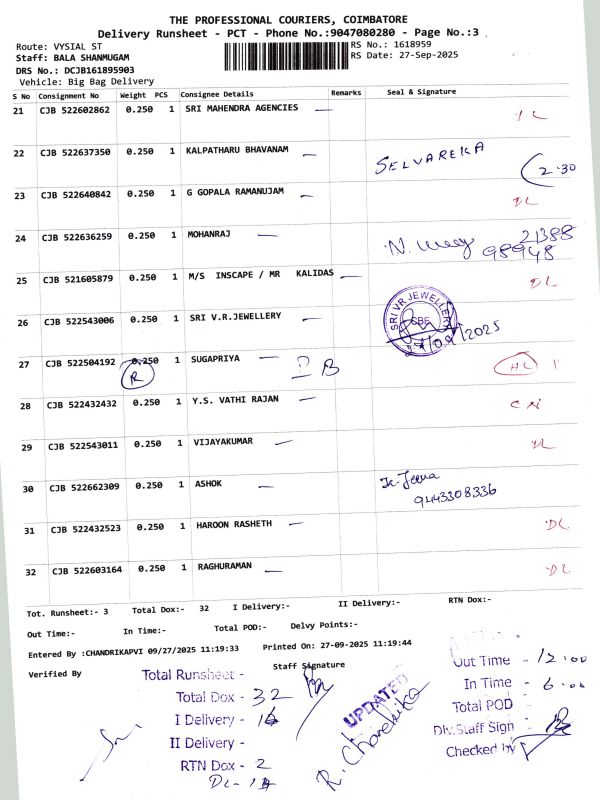 THE PROFESSIONAL COURIERS, COIMBATORE
Delivery Runsheet - PCT - Phone No.:9047080280 - Page No.:3
Route: VYSIAL ST
RS No.: 1618959
Staff: BALA SHANMUGAM
RS Date: 27-Sep-2025
DRS No.: DCJB161895903
Vehicle: Big Bag Delivery
S No Consignment No Weight PCS Consignee Details Remarks Seal & Signature
21 CJB 522602862 0.250 1 SRI MAHENDRA AGENCIES
22 CJB 522637350 0.250 1 KALPATHARU BHAVANAM SELVAREKA 2.30
23 CJB 522640842 0.250 1 G GOPALA RAMANUJAM DL
24 CJB 522636259 0.250 1 MOHANRAJ 21388
98948
25 CJB 521605879 0.250 1 M/S INSCAPE / MR KALIDAS DL
26 CJB 522543006 0.250 1 SRI V.R.JEWELLERY SRI VR JEWELLERY CBE
27/09/2025
27 CJB 522504192 0.250 1 SUGAPRIYA
R
28 CJB 522432432 0.250 1 Y.S. VATHI RAJAN
29 CJB 522543011 0.250 1 VIJAYAKUMAR
30 CJB 522662309 0.250 1 ASHOK
9443308336
31 CJB 522432523 0.250 1 HAROON RASHETH DL
32 CJB 522603164 0.250 1 RAGHURAMAN DL
Tot. Runsheet:- 3 Total Dox:- 32 I Delivery:- II Delivery:- RTN Dox:-
Out Time:- In Time:- Total POD:- Delvy Points:-
Entered By :CHANDRIKAPVI 09/27/2025 11:19:33 Printed On: 27-09-2025 11:19:44
Verified By Staff Signature
Total Runsheet -
Total Dox - 32
I Delivery -
II Delivery -
RTN Dox - 2
DL -
UPDATED
R. Chandrika
Out Time - 12.00
In Time - 6.00
Total POD -
Div.Staff Sign -
Checked by